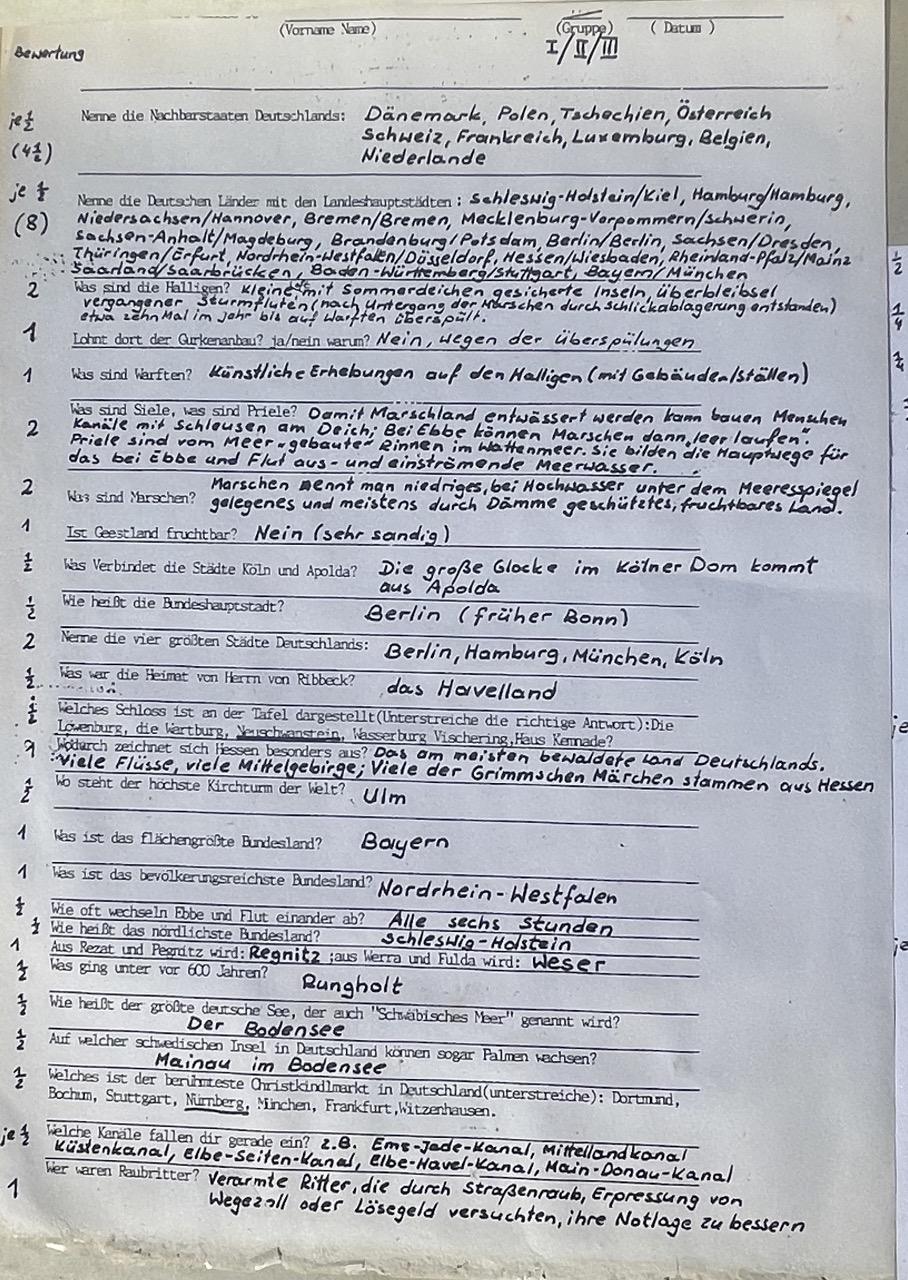 (Vorname Name) (Gruppe) ( Datum )
I/II/III
Bewertung
je ½ Nenne die Nachbarstaaten Deutschlands: Dänemark, Polen, Tschechien, Österreich
(4½) Schweiz, Frankreich, Luxemburg, Belgien,
Niederlande
je ½ Nenne die Deutschen Länder mit den Landeshauptstädten: Schleswig-Holstein/Kiel, Hamburg/Hamburg,
(8) Niedersachsen/Hannover, Bremen/Bremen, Mecklenburg-Vorpommern/Schwerin,
Sachsen-Anhalt/Magdeburg, Brandenburg/Potsdam, Berlin/Berlin, Sachsen/Dresden,
Thüringen/Erfurt, Nordrhein-Westfalen/Düsseldorf, Hessen/Wiesbaden, Rheinland-Pfalz/Mainz
Saarland/Saarbrücken, Baden-Württemberg/Stuttgart, Bayern/München
2 Was sind die Halligen? Kleine, mit Sommerdeichen gesicherte Inseln, überbleibsel
vergangener Sturmfluten (nach Untergang der Marschen durch Schlickablagerung entstanden)
etwa zehn Mal im Jahr bis auf Warften überspült.
1 Lohnt dort der Gurkenanbau? ja/nein warum? Nein, wegen der Überspülungen
1 Was sind Warften? Künstliche Erhebungen auf den Halligen (mit Gebäuden/Ställen)
Was sind Siele, was sind Priele? Damit Marschland entwässert werden kann bauen Menschen
2 Kanäle mit Schleusen am Deich; Bei Ebbe können Marschen dann „leer laufen“.
Priele sind vom Meer „gebaute“ Rinnen im Wattenmeer. Sie bilden die Hauptwege für
das bei Ebbe und Flut aus- und einströmende Meerwasser.
2 Marschen nennt man niedriges, bei Hochwasser unter dem Meeresspiegel
Was sind Marschen? gelegenes und meistens durch Dämme geschütztes, fruchtbares Land.
1 Ist Geestland fruchtbar? Nein (sehr sandig)
½ Was Verbindet die Städte Köln und Apolda? Die große Glocke im Kölner Dom kommt
aus Apolda
½ Wie heißt die Bundeshauptstadt? Berlin (früher Bonn)
2 Nenne die vier größten Städte Deutschlands: Berlin, Hamburg, München, Köln
½ Was war die Heimat von Herrn von Ribbeck? das Havelland
½ Welches Schloss ist an der Tafel dargestellt(Unterstreiche die richtige Antwort):Die
Löwenburg, die Wartburg, Neuschwanstein, Wasserburg Vischering,Haus Kemnade?
1 Wodurch zeichnet sich Hessen besonders aus? Das am meisten bewaldete Land Deutschlands.
Viele Flüsse, viele Mittelgebirge; Viele der Grimmschen Märchen stammen aus Hessen
½ Wo steht der höchste Kirchturm der Welt? Ulm
1 Was ist das flächengrößte Bundesland? Bayern
1 Was ist das bevölkerungsreichste Bundesland? Nordrhein-Westfalen
½ Wie oft wechseln Ebbe und Flut einander ab? Alle sechs Stunden
½ Wie heißt das nördlichste Bundesland? Schleswig-Holstein
1 Aus Rezat und Pegnitz wird: Regnitz ;aus Werra und Fulda wird: Weser
½ Was ging unter vor 600 Jahren?
Rungholt
½ Wie heißt der größte deutsche See, der auch "Schwäbisches Meer" genannt wird?
Der Bodensee
½ Auf welcher schwedischen Insel in Deutschland können sogar Palmen wachsen?
Mainau im Bodensee
½ Welches ist der berühmteste Christkindlmarkt in Deutschland(unterstreiche): Dortmund,
Bochum, Stuttgart, Nürnberg, München, Frankfurt,Witzenhausen.
je ½ Welche Kanäle fallen dir gerade ein? z.B. Ems-Jade-Kanal, Mittellandkanal
Küstenkanal, Elbe-Seiten-Kanal, Elbe-Havel-Kanal, Main-Donau-Kanal
Wer waren Raubritter? Verarmte Ritter, die durch Straßenraub, Erpressung von
1 Wegezoll oder Lösegeld versuchten, ihre Notlage zu bessern
½
¼
¼
je
je